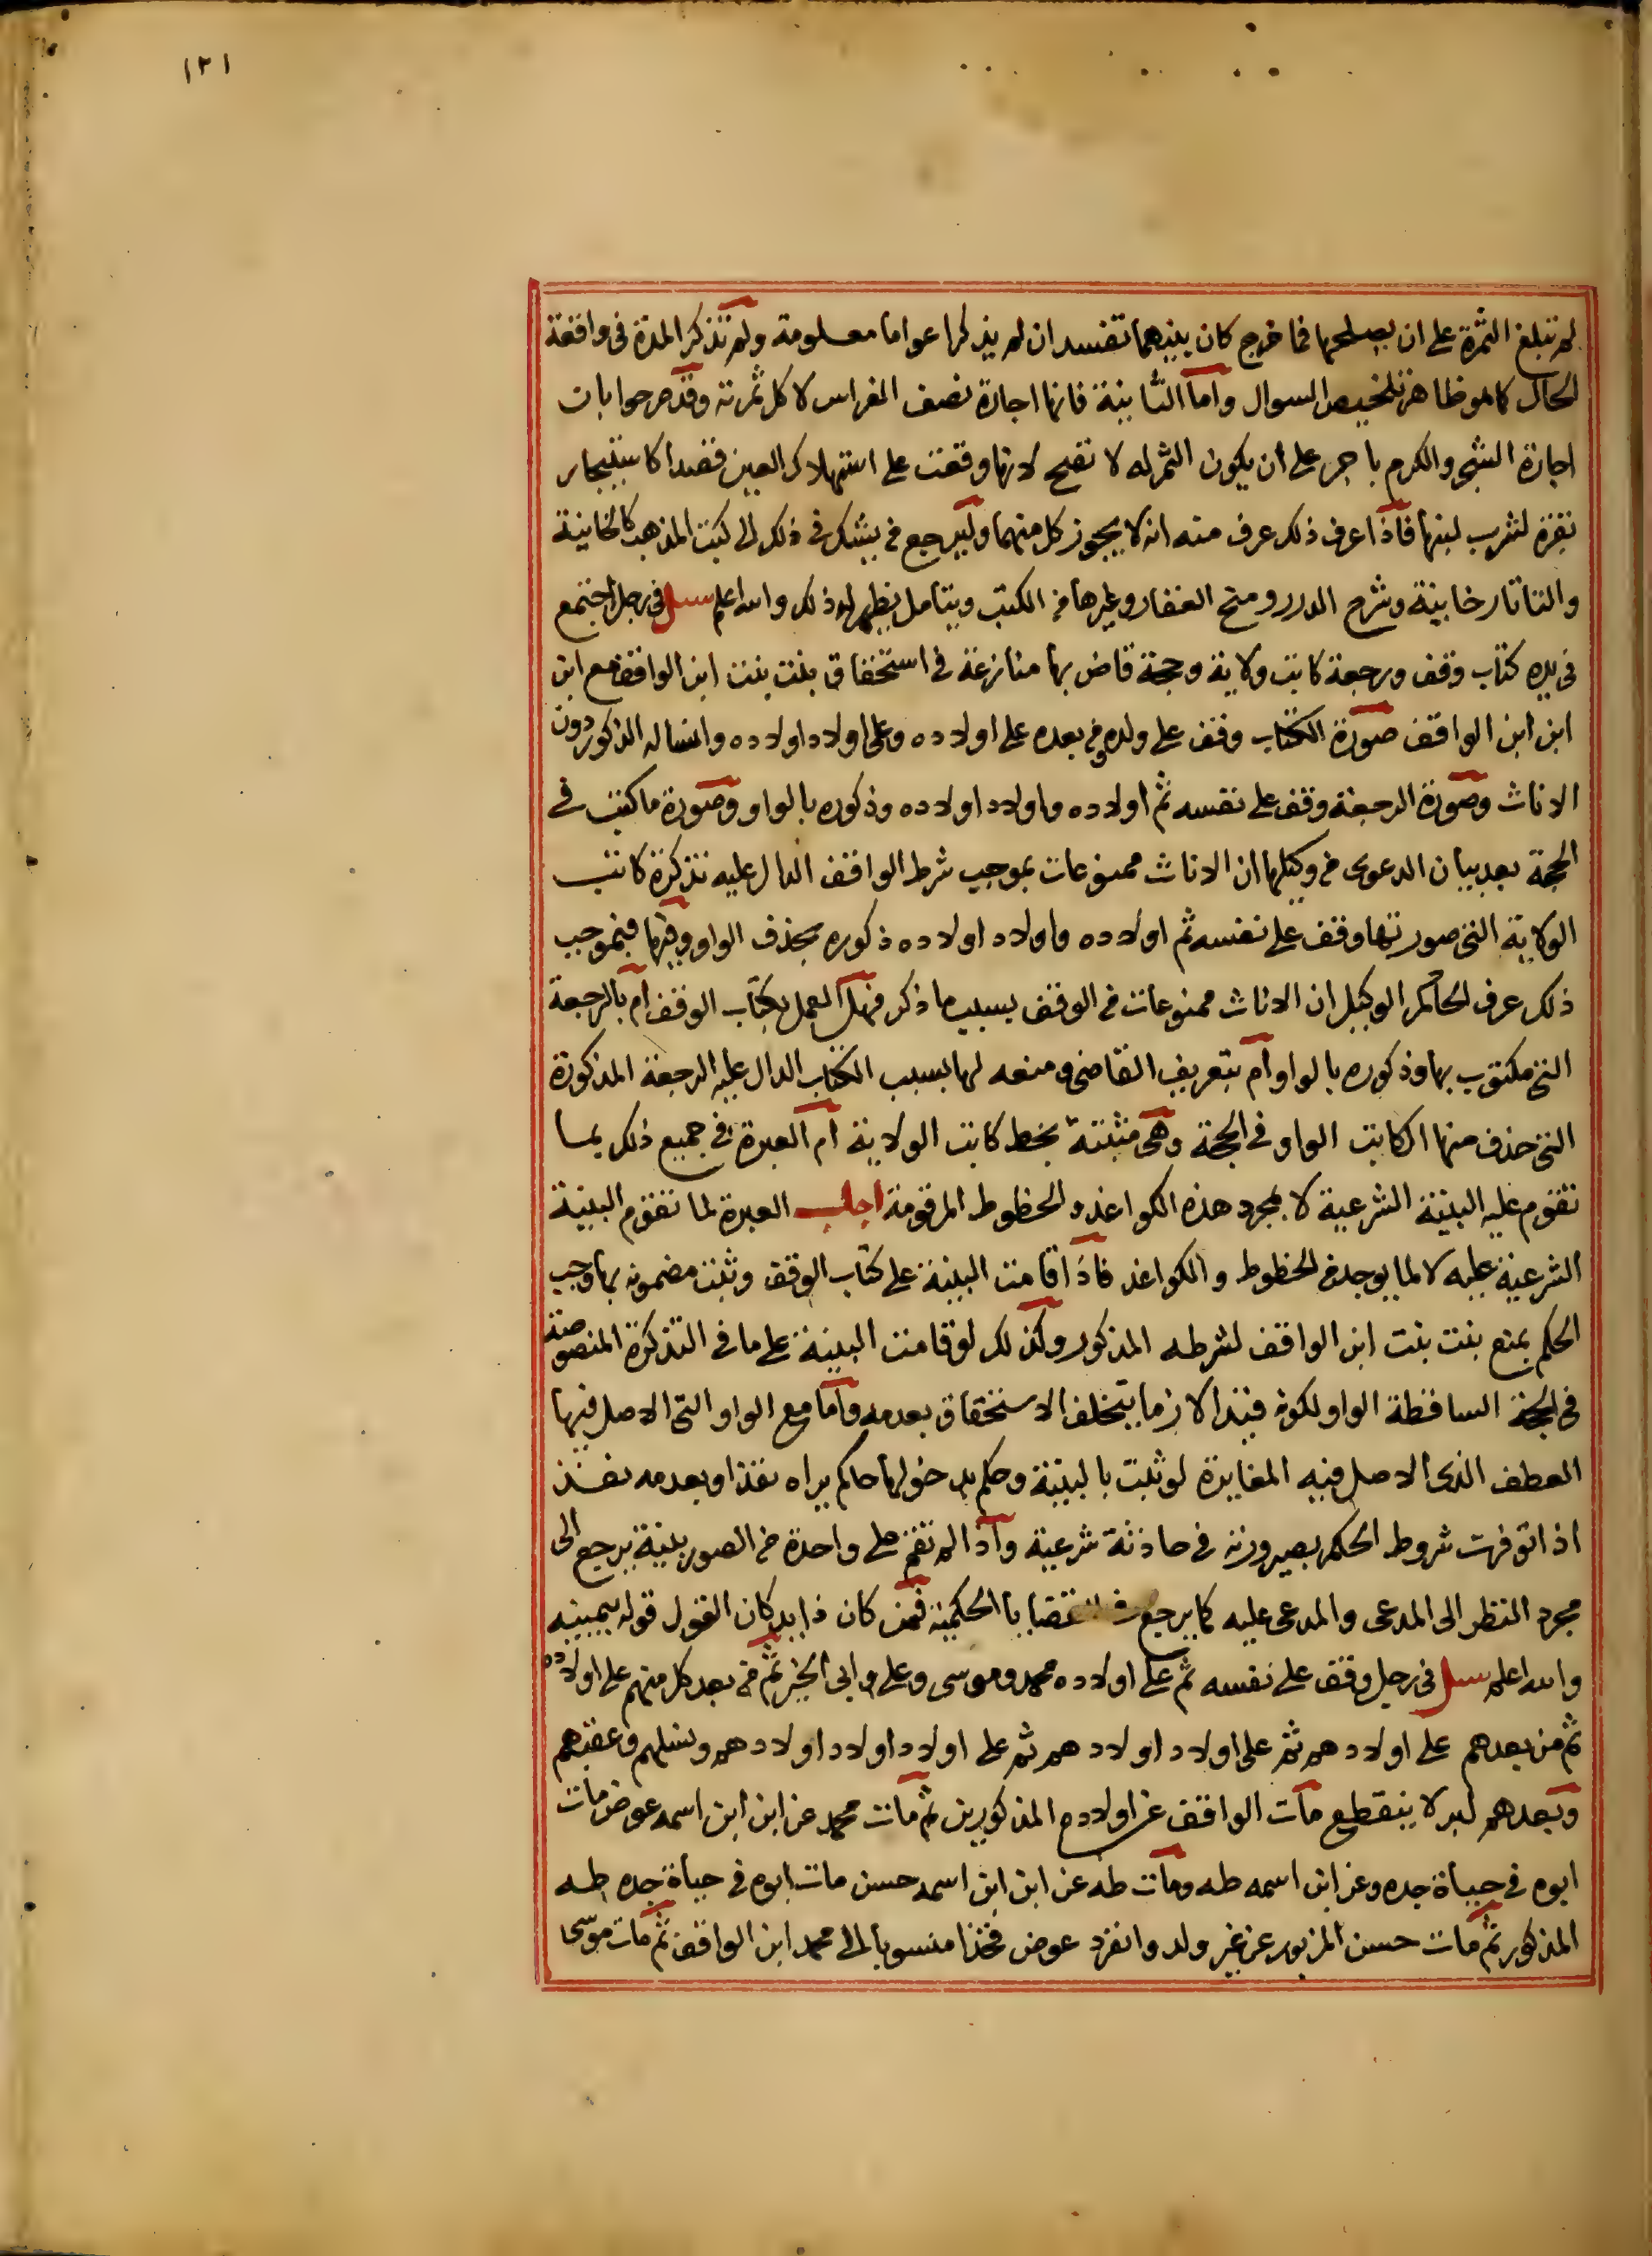 ١٢١
لم تبلغ الثمرة على ان يصلحها فما خرج كان بينهما تفسد ان لم يذكرا عواما معلومة ولم تذكر المدة في واقعة
الحال كما هو ظاهر تلخيص السوال واما الثانية فانها اجارة نصف الغراس لاكل ثمرته وقد صرحوا بان
اجارة الشجر والكرم باجر على ان يكون الثمر له لا تصح لانها وقعت على استهلاك العين قصدا كاستيجار
بقرة لشرب لبنها فاذا عرف ذلك عرف منه انه لا يجوز كل منهما وليرجع من يشك في ذلك الى كتب المذهب كالخانية
والتاتارخانية وشرح الدرر ومنح الغفار وغيرها من الكتب ويتامل يظهر له ذلك والله اعلم سئل في رجل اجتمع
في يده كتاب وقف ورجعة كاتب ولاية وحجة قاض بها منازعة في استحقاق بنت بنت ابن الواقف مع ابن
ابن ابن الواقف صورة الكتاب وقف على ولده ومن بعده على اولاده وعلى اولاد اولاده وانساله الذكور دون
الاناث وصورة الرجعة وقف على نفسه ثم اولاده واولاد اولاده وذكوره بالواو وصورة ما كتب في
الحجة بعد بيان الدعوى من وكيلها ان الاناث ممنوعات بموجب شرط الواقف الدال عليه تذكرة كاتب
الولاية التي صورتها وقف على نفسه ثم اولاده واولاد اولاده ذكوره بحذف الواو وفيها فبموجب
ذلك عرف الحاكم الوكيل ان الاناث ممنوعات من الوقف بسبب ما ذكر فهل العمل بكتاب الوقف ام بالرجعة
التي مكتوب بها وذكوره بالواو ام بتعريف القاضي ومنعه لها بسبب الكتاب الدال عليه الرجعة المذكورة
التي حذف منها الكاتب الواو في الحجة وهي مثبتة بخط كاتب الولاية ام العبرة في جميع ذلك بما
تقوم عليه البينة الشرعية لا بمجرد هذه الكواغد والخطوط المرقومة اجاب العبرة لما تقوم البينة
الشرعية عليه لا لما يوجد من الخطوط والكواغد فاذا قامت البينة على كتاب الوقف وثبت مضمونه بها وجب
الحكم بمنع بنت بنت ابن الواقف لشرطه المذكور وكذلك لو قامت البينة على ما في التذكرة المنصوصة
في الحجة الساقطة الواو لكونه قيدا لازما يتخلف الاستحقاق بعدمه واما مع الواو التي الاصل فيها
العطف الذي الاصل فيه المغايرة لو ثبت بالبينة وحكم بدخولها حاكم يراه نفذ او بعدمه نفذ
اذا توفرت شروط الحكم بصيرورته في حادثة شرعية واذا لم تقم على واحدة من الصور بينة يرجع الى
مجرد النظر الى المدعى والمدعى عليه كما يرجع القضايا الحكمية فمن كان ذا يد كان القول قوله بيمينه
والله اعلم سئل في رجل وقف على نفسه ثم على اولاده محمد وموسى وعلي وابي الخير ثم من بعد كل منهم على اولاده
ثم من بعدهم على اولادهم ثم على اولاد اولادهم ثم على اولاد اولاد اولادهم ونسلهم وعقبهم
وبعدهم لبر لا ينقطع مات الواقف عن اولاده المذكورين ثم مات محمد عن ابن ابن اسمه عوض مات
ابوه في حياة جده وعن ابن اسمه طه ومات طه عن ابن ابن اسمه حسن مات ابوه في حياة جده طه
المذكور ثم مات حسن المزبور عن غير ولد وانفرد عوض فخذا منسوبا الى محمد ابن الواقف ثم مات موسى